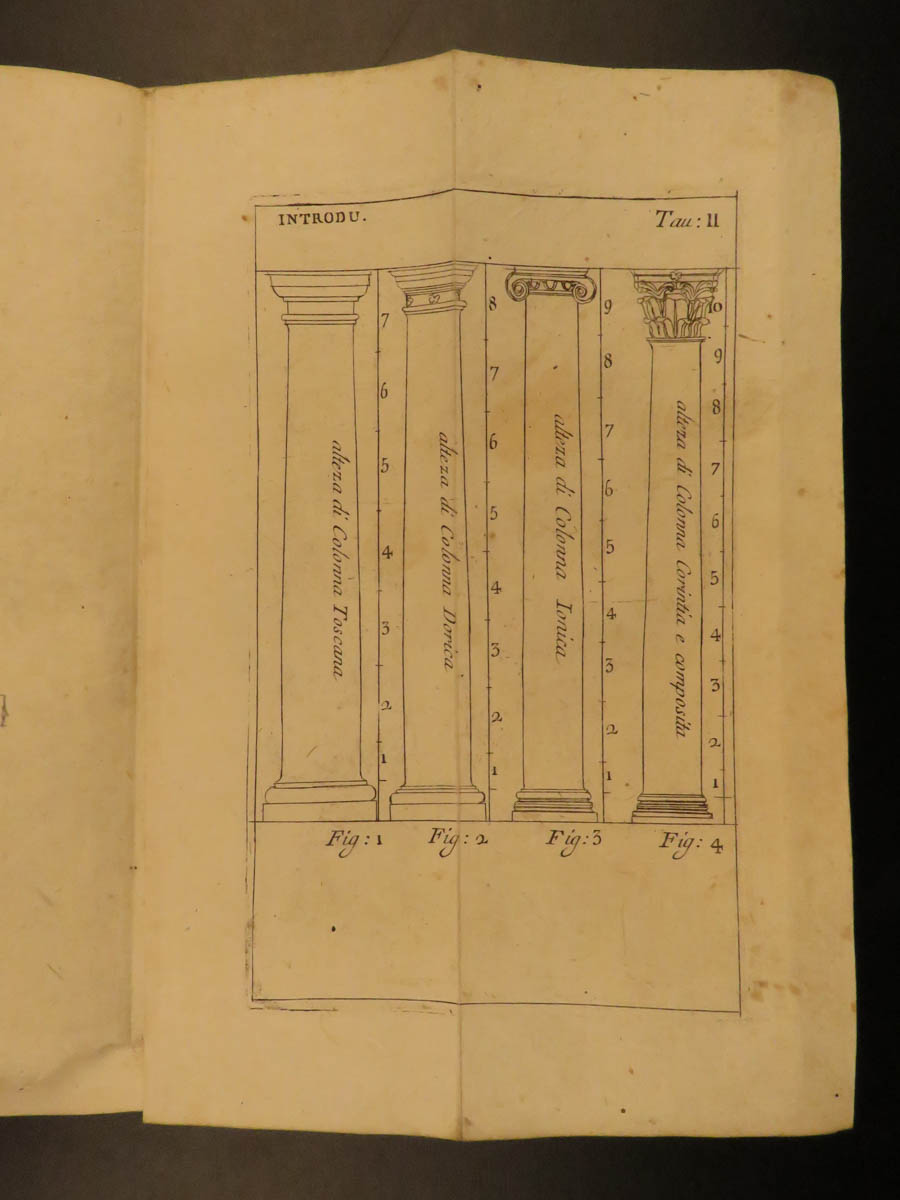 INTRODU.
Tau: II
7
6
5
4
3
2
1
alteza di Colonna Toscana
8
7
6
5
4
3
2
1
alteza di Colonna Dorica
9
8
7
6
5
4
3
2
1
alteza di Colonna Ionica
10
9
8
7
6
5
4
3
2
1
alteza di Colonna Corintia e composita
Fig: 1
Fig: 2
Fig: 3
Fig: 4